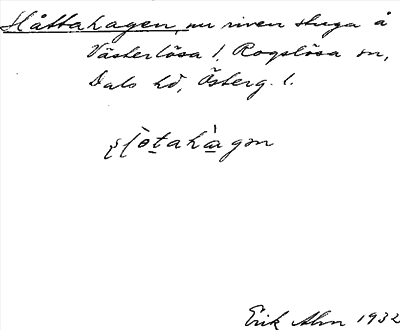 Slåttahagen, nu riven stuga å
Västerlösa 1, Rogslösa sn,
Dals hd, Österg. l.
Erik Alm 1932